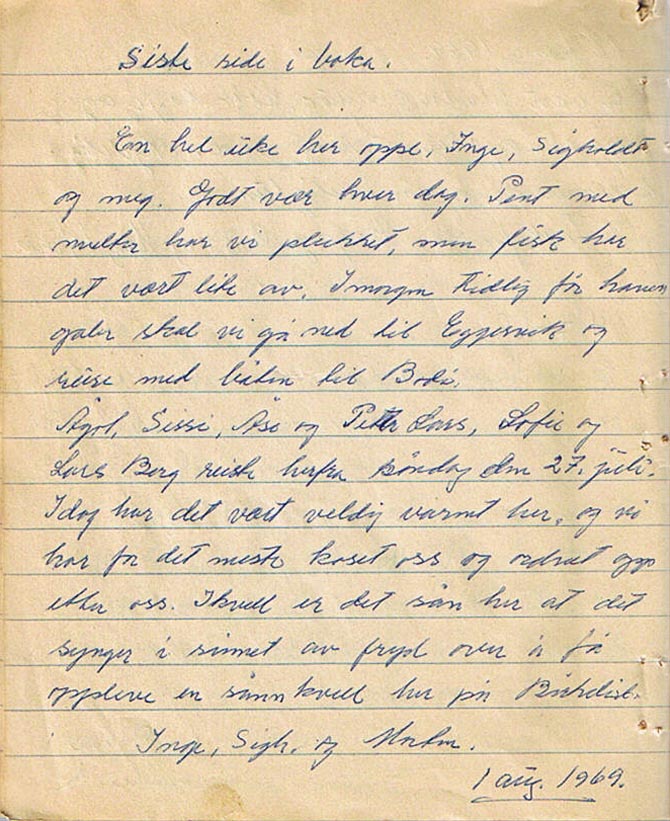 Siste side i boka.
En hel uke her oppe, Inge, Sigholdt
og meg. Godt vær hver dag. Pent med
molter har vi plukket, men fisk har
det vært lite av. I morgen tidlig før hanen
galer skal vi gå ned til Eggesvik og
reise med båten til Bodø.
Ågot, Sissi, Åse og Petter Lars, Lofie og
Lars Berg reiste herfra søndag den 27. juli.
Idag har det vært veldig varmt her, og vi
har for det meste koset oss og ordnet opp
etter oss. Ikveld er det sån her at det
synger i sinnet av fryd over å få
oppleve en sånn kveld her på
Inge, Sigh. og
1 aug. 1969.